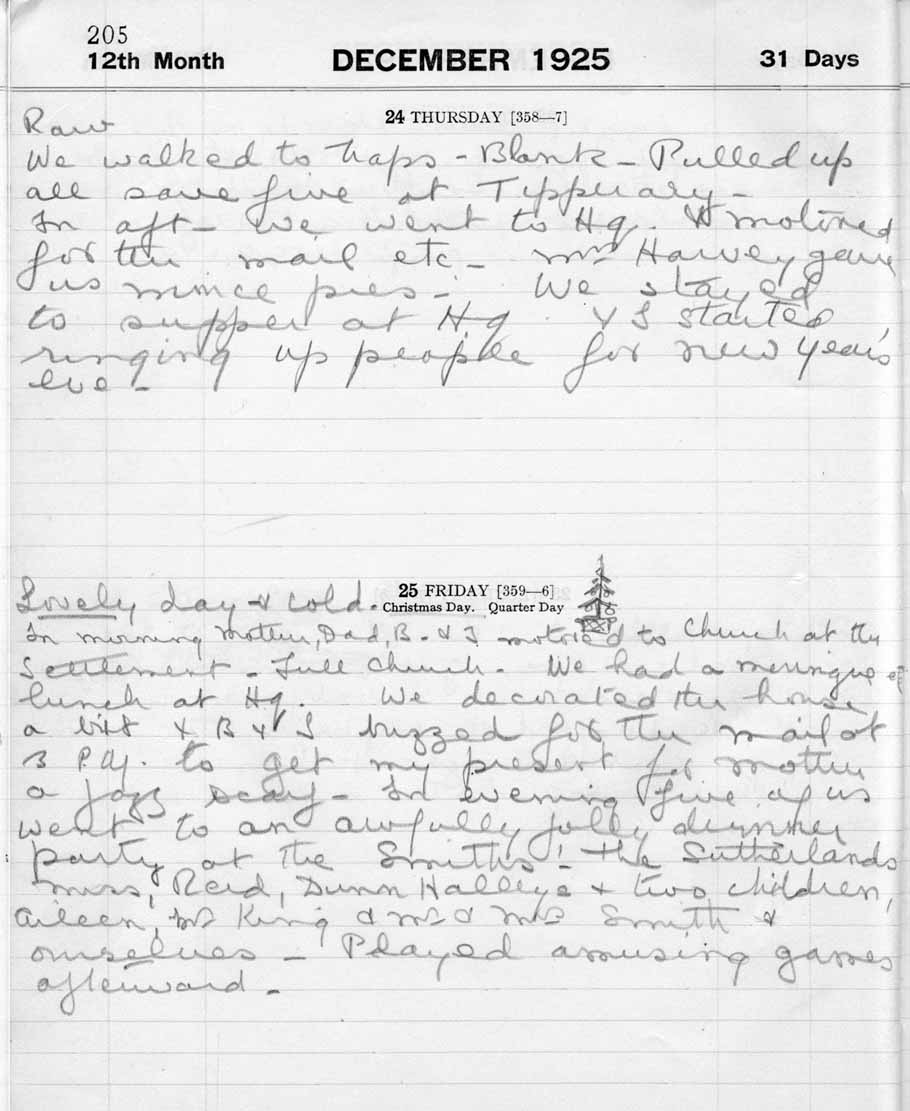 205
12th Month DECEMBER 1925 31 Days
24 THURSDAY [358—7]
Raw
We walked to traps - Blank - Pulled up
all save five at Tipperary -
In aft - we went to Hq. & motored
for the mail etc - Mrs Harvey gave
us mince pies - We stayed
to supper at Hq. & I started
ringing up people for new year's
eve -
25 FRIDAY [359—6]
Christmas Day. Quarter Day
Lovely day & cold.
In morning Mother, Dad, B. & I motored to Church at the
Settlement - Full Church. We had a meringue
lunch at Hq. We decorated the house
a bit & B & I buzzed for the mail at
3 P.M. to get my present for mother
a jazz scarf - In evening five of us
went to an awfully jolly dinner
party at the Smiths! - The Sutherlands
Miss, Reid, Dunn Halleys & two children,
Aileen, Mr King & Mr & Mrs Smith &
ourselves - Played amusing games
afterward -